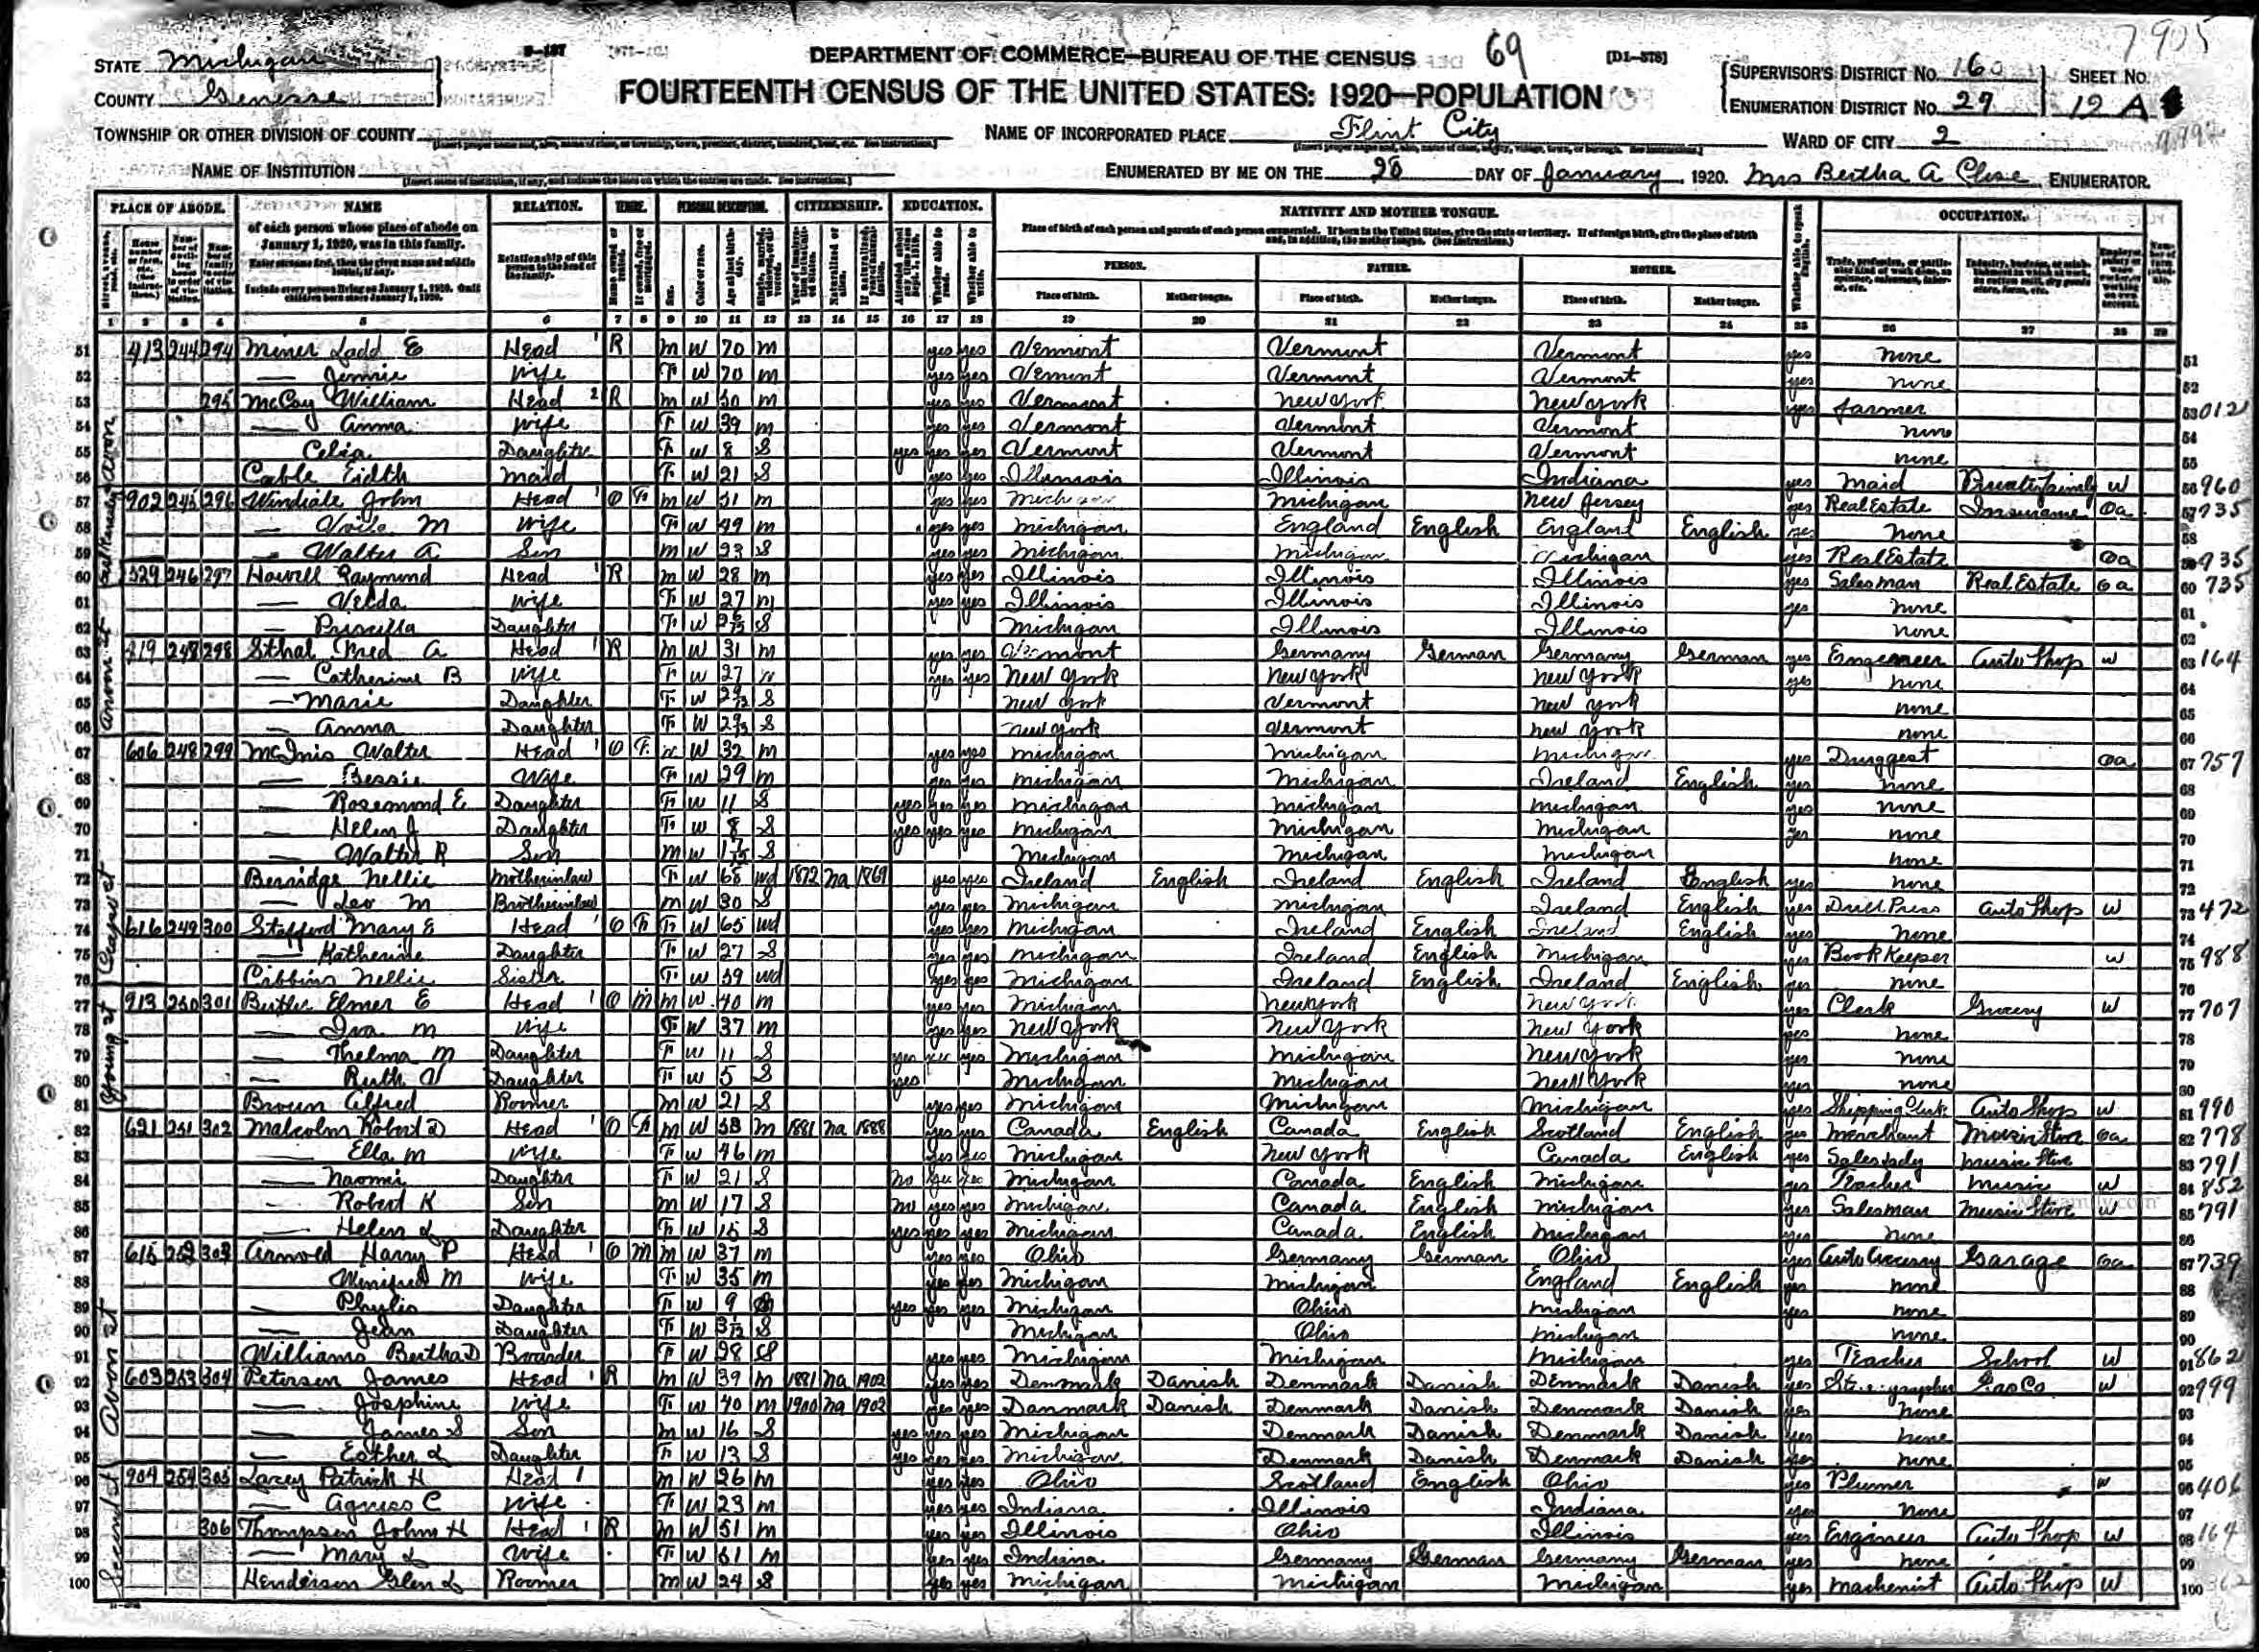 7905
STATE Michigan
COUNTY Genesse
TOWNSHIP OR OTHER DIVISION OF COUNTY
NAME OF INSTITUTION
DEPARTMENT OF COMMERCE—BUREAU OF THE CENSUS 69 [D1—578]
FOURTEENTH CENSUS OF THE UNITED STATES: 1920—POPULATION
NAME OF INCORPORATED PLACE Flint City
ENUMERATED BY ME ON THE 28 DAY OF January, 1920. Mrs Bertha A Cluse ENUMERATOR.
SUPERVISOR'S DISTRICT NO. 160
ENUMERATION DISTRICT NO. 29
SHEET NO. 12 A
WARD OF CITY 2
PLACE OF ABODE. NAME RELATION. TENURE. PERSONAL DESCRIPTION. CITIZENSHIP. EDUCATION. NATIVITY AND MOTHER TONGUE. OCCUPATION.
of each person whose place of abode on January 1, 1920, was in this family.
Enter surname first, then the given name and middle initial, if any.
Include every person living on January 1, 1920. Omit children born since January 1, 1920.
Relationship of this person to the head of the family.
Place of birth of each person and parents of each person enumerated. If born in the United States, give the state or territory. If of foreign birth, give the place of birth and, in addition, the mother tongue. (See Instructions.)
PERSON. FATHER. MOTHER.
Place of birth. Mother tongue. Place of birth. Mother tongue. Place of birth. Mother tongue.
1 2 3 4 5 6 7 8 9 10 11 12 13 14 15 16 17 18 19 20 21 22 23 24 25 26 27 28 29
51 413 244 294 Miner Ladd E Head 1 R M W 70 M yes yes Vermont Vermont Vermont yes none 51
52 — Jennie Wife F W 70 M yes yes Vermont Vermont Vermont yes none 52
53 295 McCoy William Head 2 R M W 50 M yes yes Vermont New York New York yes farmer 53 012
54 — Anna Wife F W 39 M yes yes Vermont Vermont Vermont none 54
55 Celia Daughter F W 8 S yes yes yes Vermont Vermont Vermont none 55
56 Cable Eidth Maid F W 21 S yes yes Illinois Illinois Indiana yes Maid Private family W 56 960
57 902 245 296 Windiate John Head 1 O F M W 51 M yes yes Michigan Michigan New Jersey yes Real Estate Insurance Oa 57 735
58 — M Wife F W 49 M yes yes Michigan England English England English yes none 58
59 — Walter A Son M W 23 S yes yes Michigan Michigan Michigan yes Real Estate Oa 59 735
60 529 246 297 Howell Raymond Head 1 R M W 28 M yes yes Illinois Illinois Illinois yes Salesman Real Estate Oa 60 735
61 — Velda Wife F W 27 M yes yes Illinois Illinois Illinois yes none 61
62 — Priscilla Daughter F W S Michigan Illinois Illinois none 62
63 419 248 298 Sthal Fred A Head 1 R M W 31 M yes yes Vermont Germany German Germany German yes Engeneer Auto Shop W 63 164
64 — Catherine B Wife F W 27 M yes yes New York New York New York yes none 64
65 — Marie Daughter F W S New York Vermont New York none 65
66 — Anna Daughter F W S New York Vermont New York none 66
67 606 248 299 McInis Walter Head 1 O F M W 32 M yes yes Michigan Michigan Michigan yes Druggest Oa 67 757
68 — Bessie Wife F W 29 M yes yes Michigan Michigan Ireland English yes none 68
69 — Rosemond E Daughter F W 11 S yes yes yes Michigan Michigan Michigan yes none 69
70 — Helen J Daughter F W 8 S yes yes yes Michigan Michigan Michigan yes none 70
71 — Walter R Son M W S Michigan Michigan Michigan none 71
72 Berridge Nellie Motherinlaw F W 68 Wd 1872 Na 1869 yes yes Ireland English Ireland English Ireland English yes none 72
73 — Leo M Brotherinlaw M W 30 S yes yes Michigan Michigan Ireland English yes Drill Press Auto Shop W 73 472
74 616 249 300 Stafford Mary E Head 1 O F F W 65 Wd yes yes Michigan Ireland English Ireland English yes none 74
75 — Katherine Daughter F W 27 S yes yes Michigan Ireland English Michigan yes Book Keeper W 75 988
76 Cibbins Nellie Sister F W 59 Wd yes yes Michigan Ireland English Ireland English yes none 76
77 913 250 301 Butler Elmer E Head 1 O M M W 40 M yes yes Michigan New York New York yes Clerk Grocery W 77 707
78 — Iva M Wife F W 37 M yes yes New York New York New York yes none 78
79 — Thelma M Daughter F W 11 S yes yes yes Michigan Michigan New York yes none 79
80 — Ruth V Daughter F W 5 S yes Michigan Michigan New York yes none 80
81 Brown Alfred Roomer M W 21 S yes yes Michigan Michigan Michigan yes Shipping Clerk Auto Shop W 81 990
82 621 251 302 Malcolm Robert D Head 1 O F M W 58 M 1881 Na 1888 yes yes Canada English Canada English Scotland English yes Merchant Music Store Oa 82 778
83 — Ella M Wife F W 46 M yes yes Michigan New York Canada English yes Saleslady Music Store 83 791
84 — Naomi Daughter F W 21 S no yes yes Michigan Canada English Michigan yes Teacher Music W 84 852
85 — Robert K Son M W 17 S no yes yes Michigan Canada English Michigan yes Salesman Music Store W 85 791
86 — Helen L Daughter F W 15 S yes yes yes Michigan Canada English Michigan yes none 86
87 615 252 303 Arnold Harry P Head 1 O M M W 37 M yes yes Ohio Germany German Ohio yes Auto Accessry Garage Oa 87 739
88 — Winifred M Wife F W 35 M yes yes Michigan Michigan England English yes none 88
89 — Phylis Daughter F W 9 S yes yes yes Michigan Ohio Michigan yes none 89
90 — Jean Daughter F W S Michigan Ohio Michigan none 90
91 Williams Bertha D Boarder F W 28 S yes yes Michigan Michigan Michigan yes Teacher School W 91 862
92 603 253 304 Petersen James Head 1 R M W 39 M 1881 Na 1902 yes yes Denmark Danish Denmark Danish Denmark Danish yes Gas Co W 92 999
93 — Josephine Wife F W 40 M 1900 Na 1902 yes yes Danmark Danish Denmark Danish Denmark Danish yes none 93
94 — James S Son M W 16 S yes yes yes Michigan Denmark Danish Denmark Danish yes none 94
95 — Esther L Daughter F W 13 S yes yes yes Michigan Denmark Danish Denmark Danish yes none 95
96 904 254 305 Lacey Patrick H Head 1 M W 26 M yes yes Ohio Scotland English Ohio yes Plumer W 96 406
97 — Agness C Wife F W 23 M yes yes Indiana Illinois Indiana yes none 97
98 306 Thompson John H Head 1 R M W 51 M yes yes Illinois Ohio Illinois yes Engineer Auto Shop W 98 164
99 — Mary L Wife F W 51 M yes yes Indiana Germany German Germany German yes none 99
100 Henderson Glen L Roomer M W 24 S yes yes Michigan Michigan Michigan yes Machenist Auto Shop W 100 362